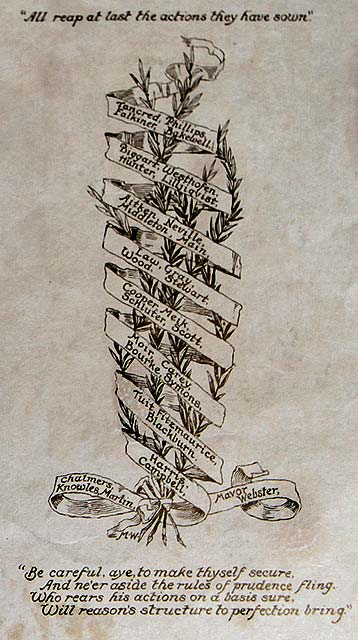 "All reap at last the actions they have sown."
Tancred, Phillips,
Falkiner, Bakewell.
Biggart, Westhofen,
Hunter, Lilliquist.
Arthur, Neville,
Middleton, Main.
Law, Gray,
Wood, Stewart.
Cooper, Meik,
Schluter, Scott.
Moir, Carey
Bourke, Symons.
Tuit, Fitzmaurice,
Blackburn.
Harris,
Campbell.
Chalmers,
Knowles, Martin.
Mavor,
Webster.
M.W.
"Be careful, aye, to make thyself secure,
And ne'er aside the rules of prudence fling.
Who rears his actions on a basis sure,
Will reason's structure to perfection bring."